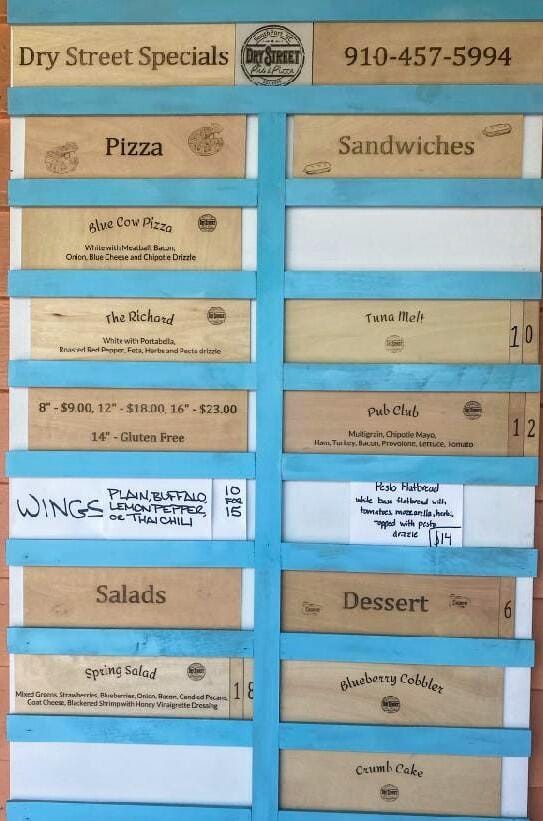 Dry Street Specials
Southport, NC
DRY STREET
Pub & Pizza
910-457-5994
Pizza
Blue Cow Pizza
White with Meatball, Bacon,
Onion, Blue Cheese and Chipotle Drizzle
The Richard
White with Portabella,
Roasted Red Pepper, Feta, Herbs and Pesto drizzle
8" - $9.00, 12" - $18.00, 16" - $23.00
14" - Gluten Free
WINGS
PLAIN, BUFFALO,
LEMON PEPPER,
OR THAI CHILI
10
FOR
15
Salads
Spring Salad
Mixed Greens, Strawberries, Blueberries, Onion, Bacon, Candied Pecans,
Goat Cheese, Blackened Shrimp with Honey Vinaigrette Dressing
18
Sandwiches
Tuna Melt
10
Pub Club
Multigrain, Chipotle Mayo,
Ham, Turkey, Bacon, Provolone, Lettuce, Tomato
12
Pesto Flatbread
white base flatbread with
tomatoes, mozzarella, herbs,
topped with pesto
drizzle $14
Dessert
6
Blueberry Cobbler
Crumb Cake